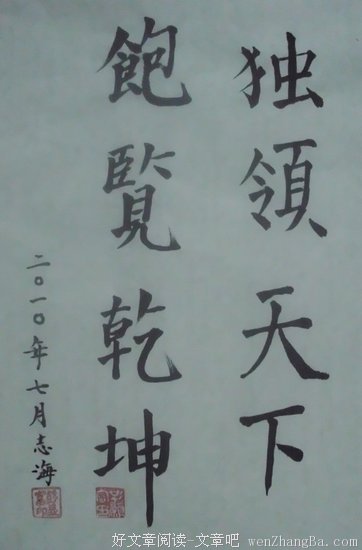 独領天下
飽覧乾坤
二〇一〇年七月志海
好文章阅读-文章吧 wenZhangBa.com